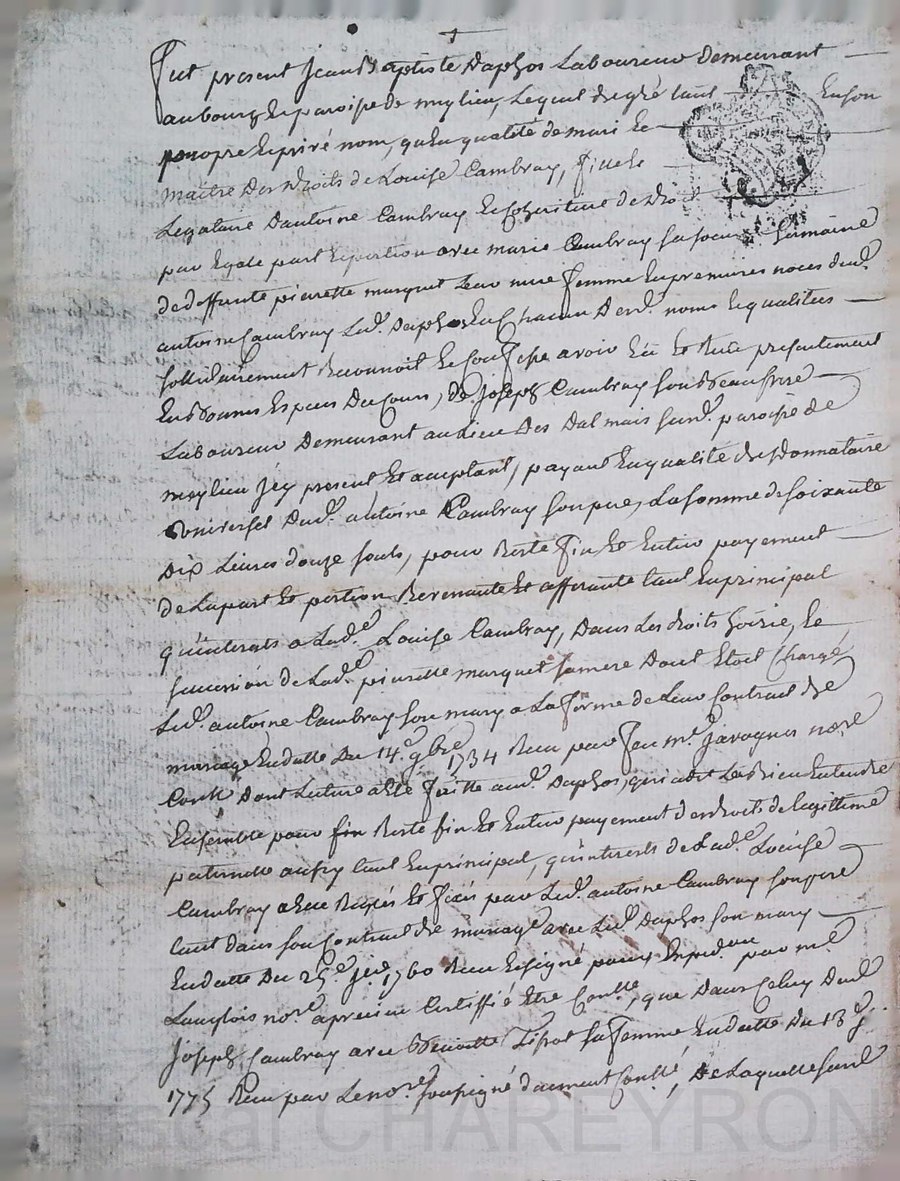 Fut present Jean Baptiste Daphos Laboureur Demeurant
au bourg et paroisse de meylieu, Lequel de gré tant en son
propre et privé nom, qu'en qualité de mari et
maitre Des Droits de Louise Cambray, fille et
Legataire D'antoine Cambray et Coheritiere de dro
par Egale part et portion avec marie Cambray sa soeur Germaine
de deffunte pierrette marquet Leur mere femme En premieres noces dud.
antoine Cambray Led. Daphos En Chacun Desd. noms et qualités
sollidairement Reconnoit et Confesse avoir Eu et Recu presentement
En bonnes Especes Du Cours, De Joseph Cambray son Beaufrere
Laboureur Demeurant au lieu Des Dalmais susd. paroisse de
meylieu jcy present Et acceptant, payant En qualité de Donnataire
Universel Dud. antoine Cambray son pere, La somme de soixante
Dix Livres douze sols, pour Reste fin Et Entier payement
de La part Et portion Revenante Et afferante tant En principal
qu'interets a Lad. Louise Cambray, Dans Les droits hoirie, et
succession de Lad. pierrette marquet sa mere Dont Etoit Chargé
Led. antoine Cambray son mary a La forme de Leur Contract de
mariage En datte Du 14.e 9bre 1734 Recu par feu me. Javogues nore.
Dont Lecture a Eté faitte aud. Daphos, qui a dit Le Bien Entendre
Ensemble pour fin Reste fin Et Entier payement des droits de Legitime
paternelle aussy tant En principal, qu'interets de Lad.e Louise
Cambray a Elle Reglés Et fixés par Led. antoine Cambray son pere
tant dans son Contract de mariage avec Led. Daphos son mary
En datte Du 25.e 1760 Recu Et signé par me.
Langlois nore. Certiffié Etre Conllé, que Dans Celuy Dud.
Joseph Cambray avec Benoitte sa femme En datte Du 13
1775 Recu par Le nore. soussigné duement Conllé, De Laquelle susd.
Pascal CHAREYRON